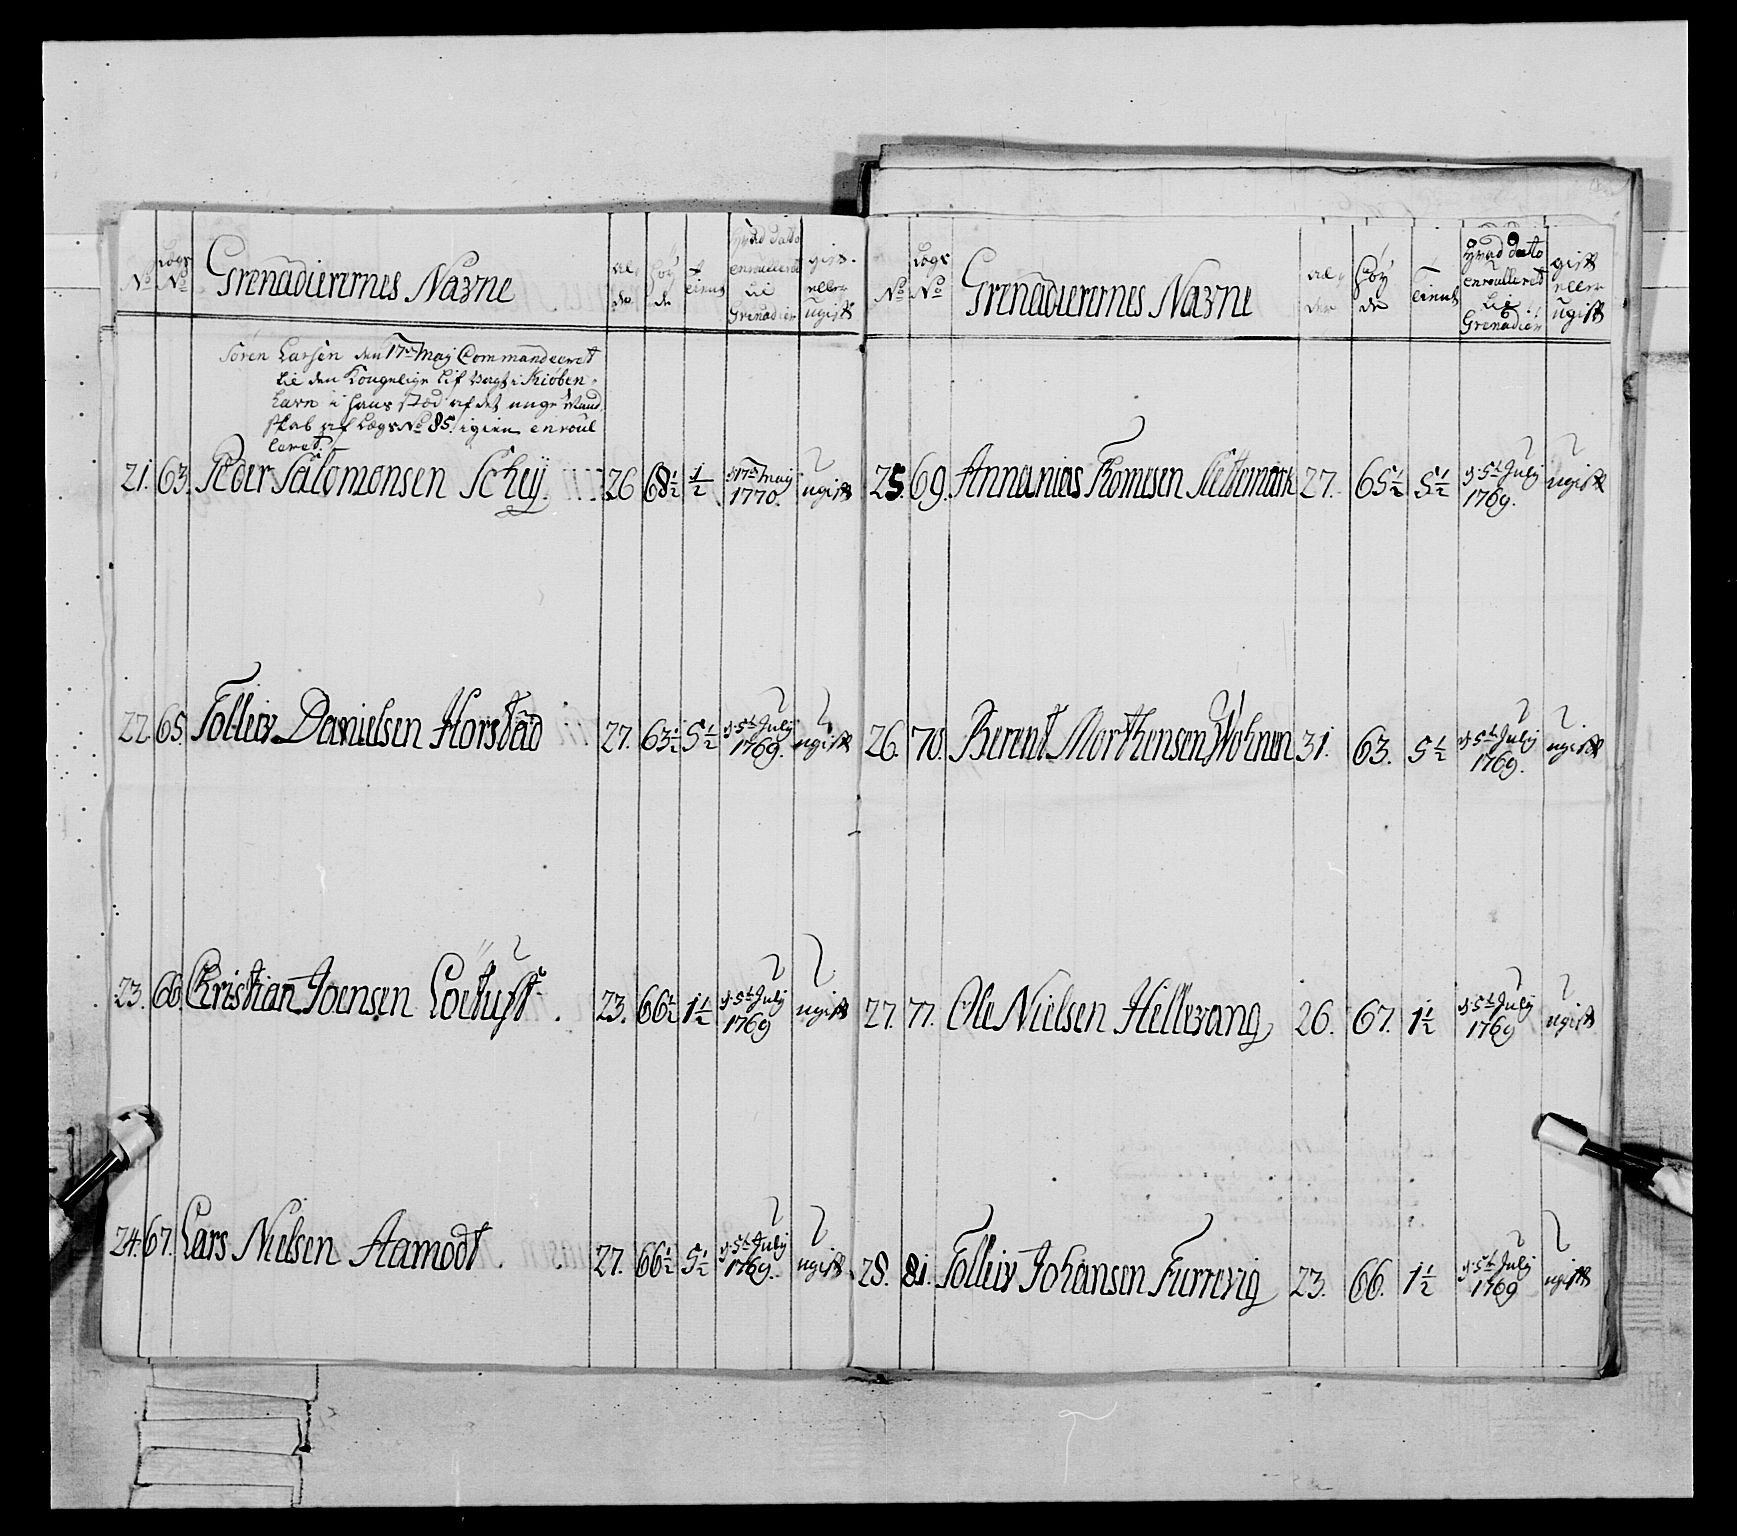 No
Lægs No
Grenadierernes Navne
al,
der
höy
de
tient
Hvad dato
enroulleret
til
Grenadier
gift
eller
ugift
Sören Larsen den 17de Maij Commanderet
til den Kongelige Lif Vagt i Kiöben,
havn i hans stæd af det unge Mand,
skab af Lægs No 85. igien enroul
leret.
21. 63. Peder Salomonsen Schey. 26 68½ ½ d. 17de Maij 1770. ugift
22. 65. Tolleiv Danielsen Horstad 27. 63½ 5½ d. 5te Julij 1769. ugift
23. 66. Christian Joensen 23. 66½ 1½ d. 5te Julij 1769 ugift
24. 67. Lars Nielsen Aamodt. 27. 66½ 5½ d. 5te Julij 1769. ugift
No
Lægs No
Grenadierernes Navne
al,
der
höy
de
tient
Hvad dato
enroulleret
til
Grenadier
gift
eller
ugift
25. 69. Annanias Thomesen 27. 65½ 5½ d. 5te Julij 1769. ugift
26. 70. Berent Morthensen Wohnen 31. 63. 5½ d. 5te Julij 1769. ugift
27. 77. Ole Nielsen Hillevang 26. 67. 1½ d. 5te Julij 1769 ugift
28. 81. Tolleiv Johansen Furrevig 23. 66. 1½ d. 5te Julij 1769 ugift